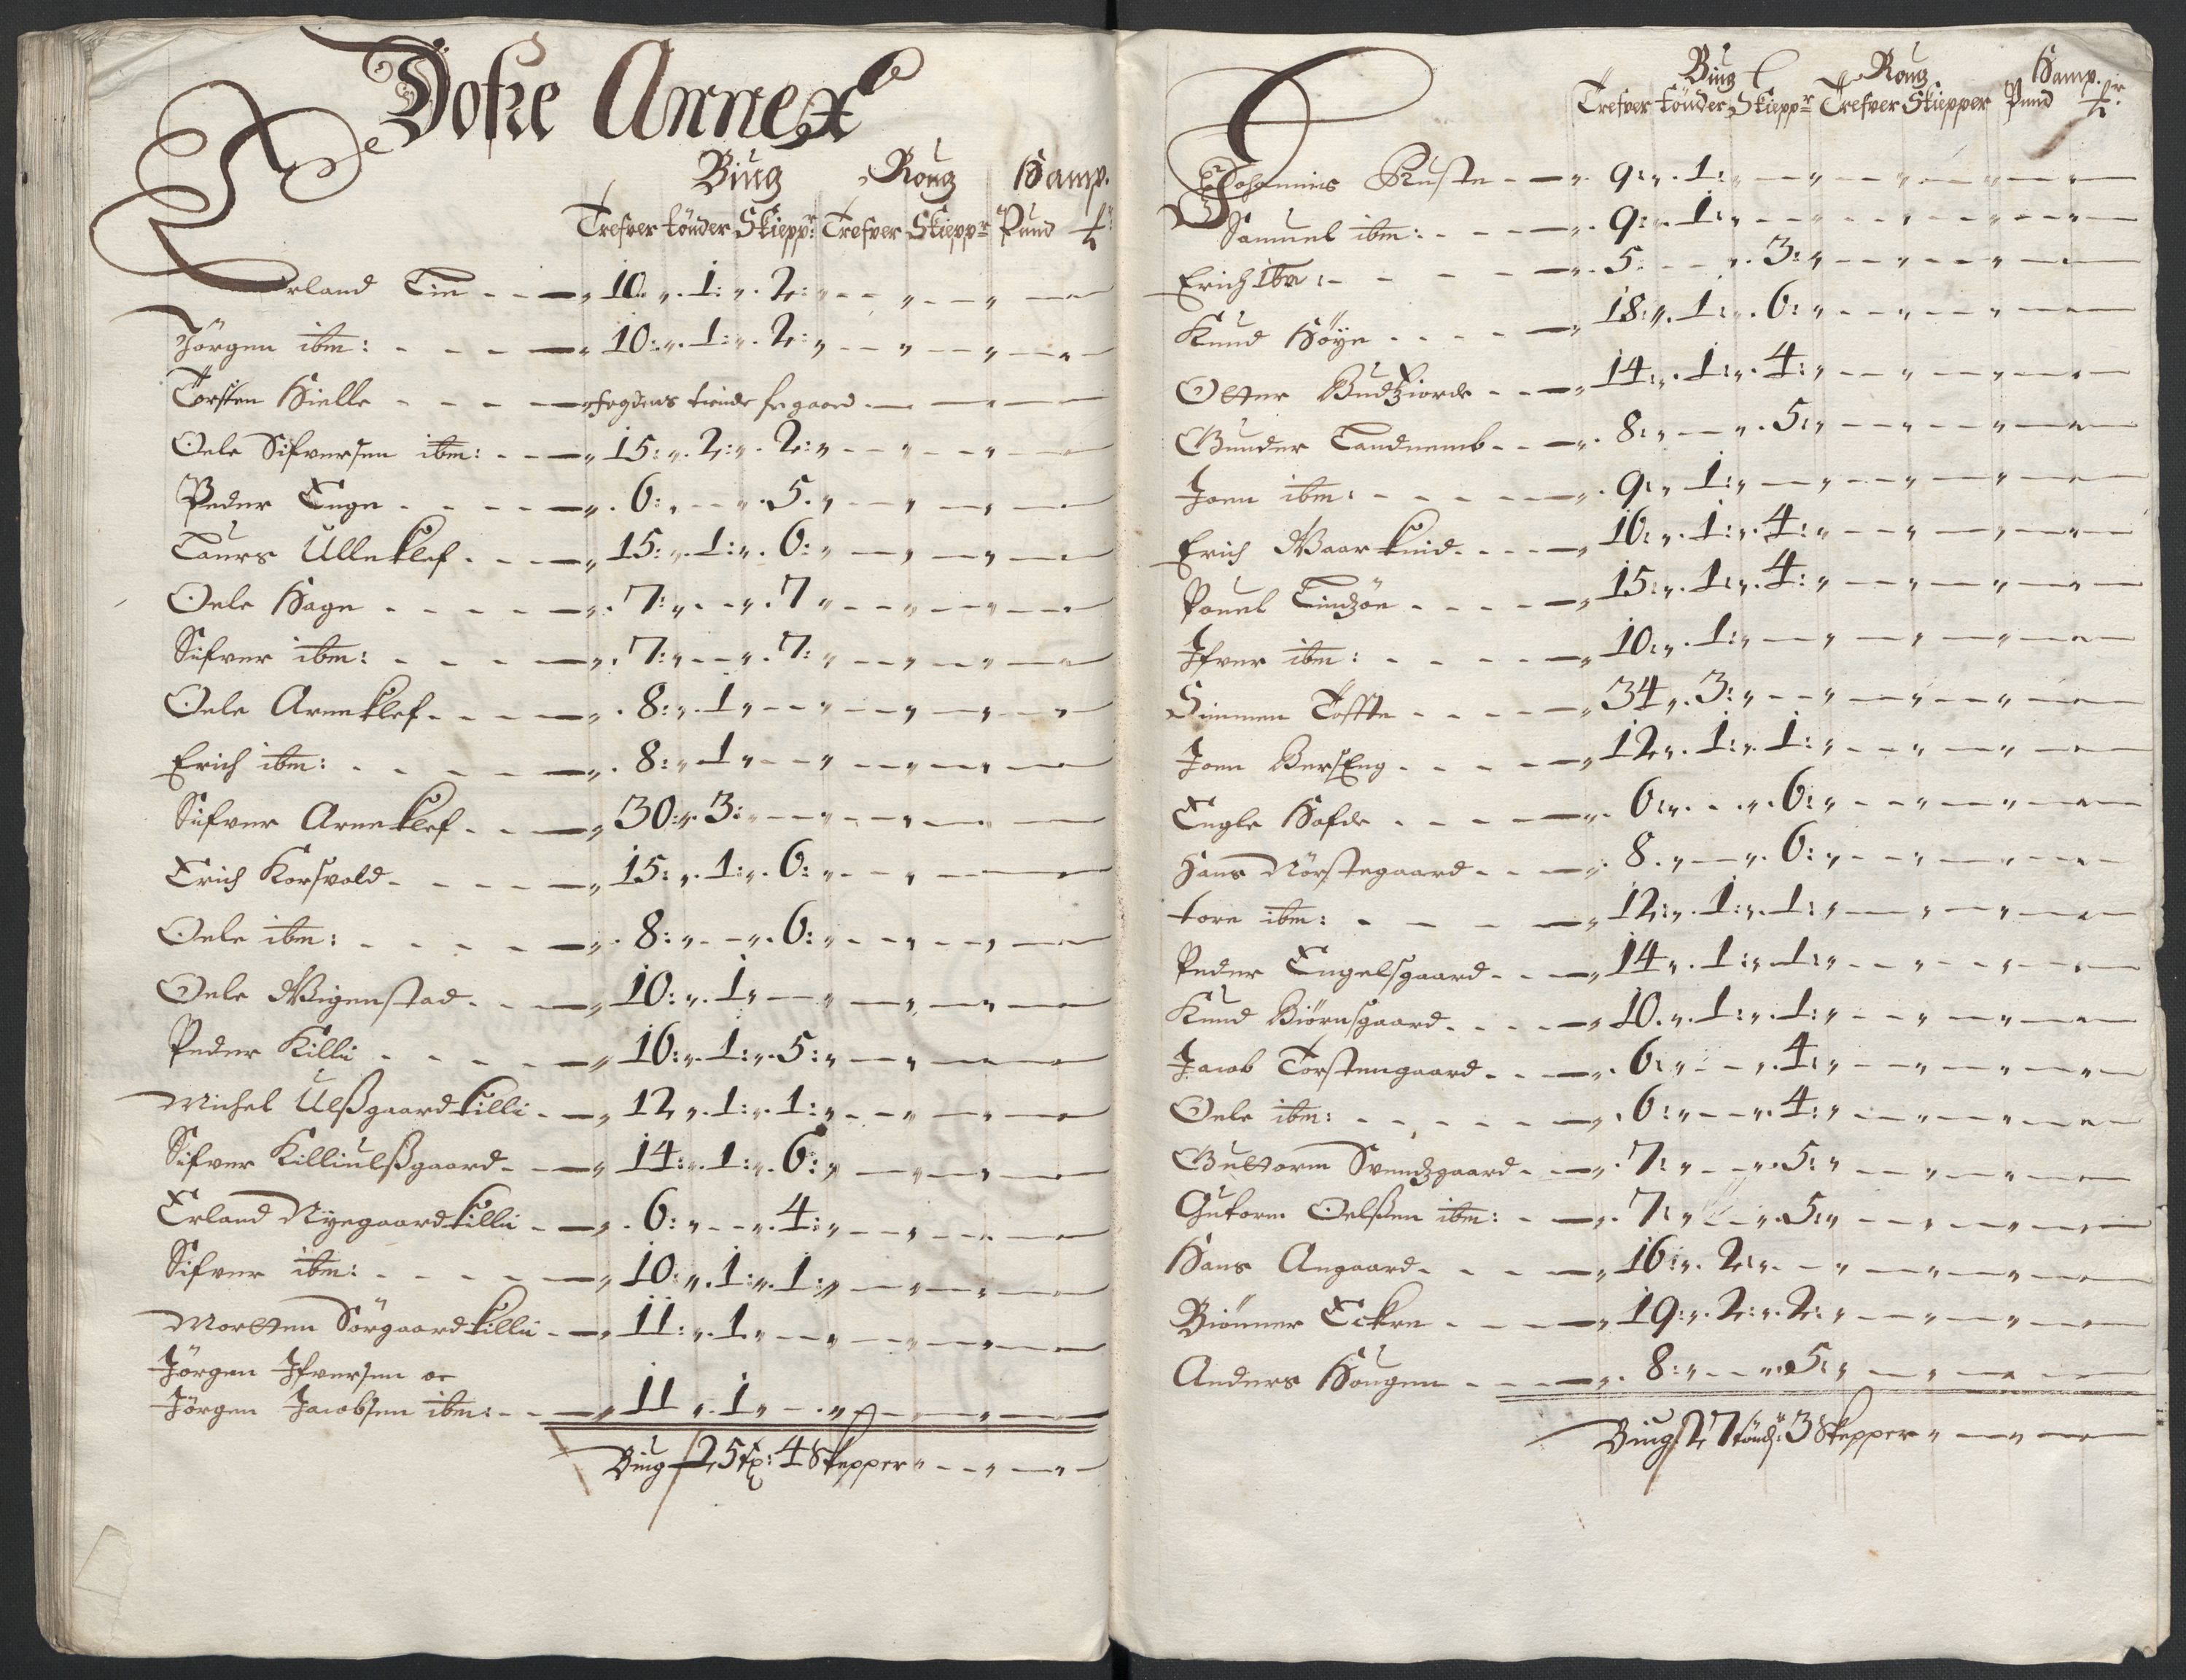 Dofre Annex
Biug Roug Hamp.
Trefver tönder Skiepp: Trefver Skiepp Pund
Erland Lie 10: 1: 2:
Jörgen ibm: 10: 1: 2:
Torsten Hielle fogdens tiende fri gaard
Oele Sifversen ibm: 15: 2: 2:
Peder Enge 6: 5.
Laurs Ulleklef 15: 1: 6:
Oele Hage 7: 7
Sifver ibm: 7: 7:
Oele Arneklef 8: 1
Erich ibm: 8: 1
Sifver Arneklef 30: 3:
Erich Korsvold 15: 1: 6:
Oele ibm: 8: 6:
Oele Wigenstad 10: 1
Peder Killi 16: 1: 5:
Michel Ulßgaard Killi 12 1: 1:
Sifver Killiulßgaard 14: 1: 6:
Erland Nyegaardkilli 6: 4:
Sifver ibm: 10: 1: 1:
Morten Sörgaardkilli 11: 1
Jörgen Ifversen oc
Jörgen Jacobsen ibm: 11 1
Biug 25 tr: 4 Skepper
Biug Roug Hamp.
Trefver tönder Skiepp Trefver Skiepper Pund
Johannis Ruste 9: 1:
Samuel ibm: 9: 1:
Erich ibm: 5: 3:
Knud Höye 18: 1: 6:
Otter Budziorde 14: 1: 4:
Gunder Landnemb 8: 5:
Joen ibm: 9: 1:
Erich Waarkind 16: 1: 4:
Pouel Lindzöe 15: 1: 4:
Ifver ibm: 10: 1:
Simmen Toffte 34 3:
Joen BersEng 12 1: 1:
Engle Hofde 6: 6:
Hans Nörstegaard 8. 6:
tore ibm: 12: 1: 1:
Peder Engelsgaard 14 1: 1:
Knud Biörnsgaard 10. 1: 1:
Jacob Torstengaard 6: 4:
Oele ibm: 6: 4:
Guttorm Svendzgaard 7: 5:
Gutorm Oelßen ibm: 7: 5:
Hans Angaard 16: 2:
Biönner Eckre 19: 2: 2:
Anders Hougen 8: 5:
Biug 27 tönd: 3 Skepper